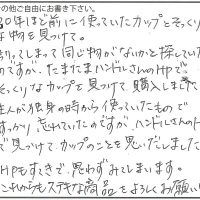 の他ご自由にお書き下さい。
30年ほど前に使っていたカップとそっくり
な物を見つけて。
割ってしまって同じ物がないかと探してい
のですが、たまたまハンドルさんのHPで、
そっくりなカップを見つけて購入しました
主人が独身の時から使っていたもので
すっかり忘れていたのですがハンドルさんのH
で見つけてカップのことを思いだしました
HPもすてきで、思わずみてしまいます。
これからもステキな商品をよろしくお願い